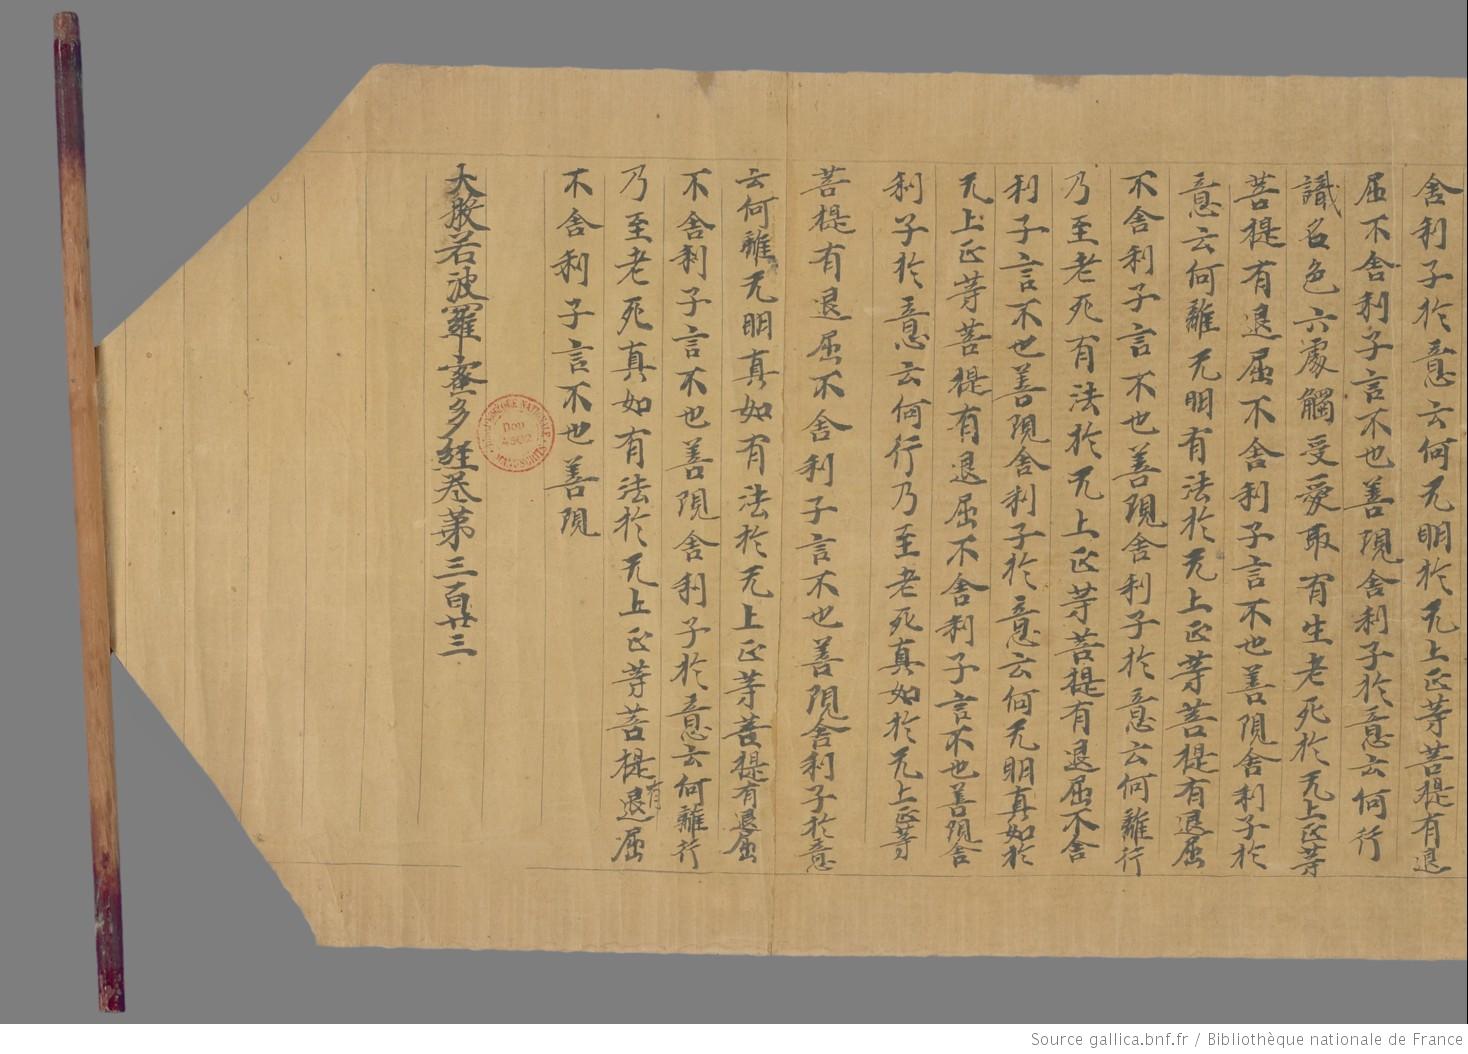 舍利子於意云何无明於无上正等菩提有退
屈不舍利子言不也善現舍利子於意云何行
識名色六處觸受愛取有生老死於无上正等
菩提有退屈不舍利子言不也善現舍利子於
意云何離无明有法於无上正等菩提有退屈
不舍利子言不也善現舍利子於意云何離行
乃至老死有法於无上正等菩提有退屈不舍
利子言不也善現舍利子於意云何无明真如於
无上正等菩提有退屈不舍利子言不也善現舍
利子於意云何行乃至老死真如於无上正等
菩提有退屈不舍利子言不也善現舍利子於意
云何離无明真如有法於无上正等菩提有退屈
不舍利子言不也善現舍利子於意云何離行
乃至老死真如有法於无上正等菩提有退屈
不舍利子言不也善現
大般若波羅蜜多經卷第三百廿三
BIBLIOTHÈQUE NATIONALE
Don
4502
MANUSCRITS
Source gallica.bnf.fr / Bibliothèque nationale de France